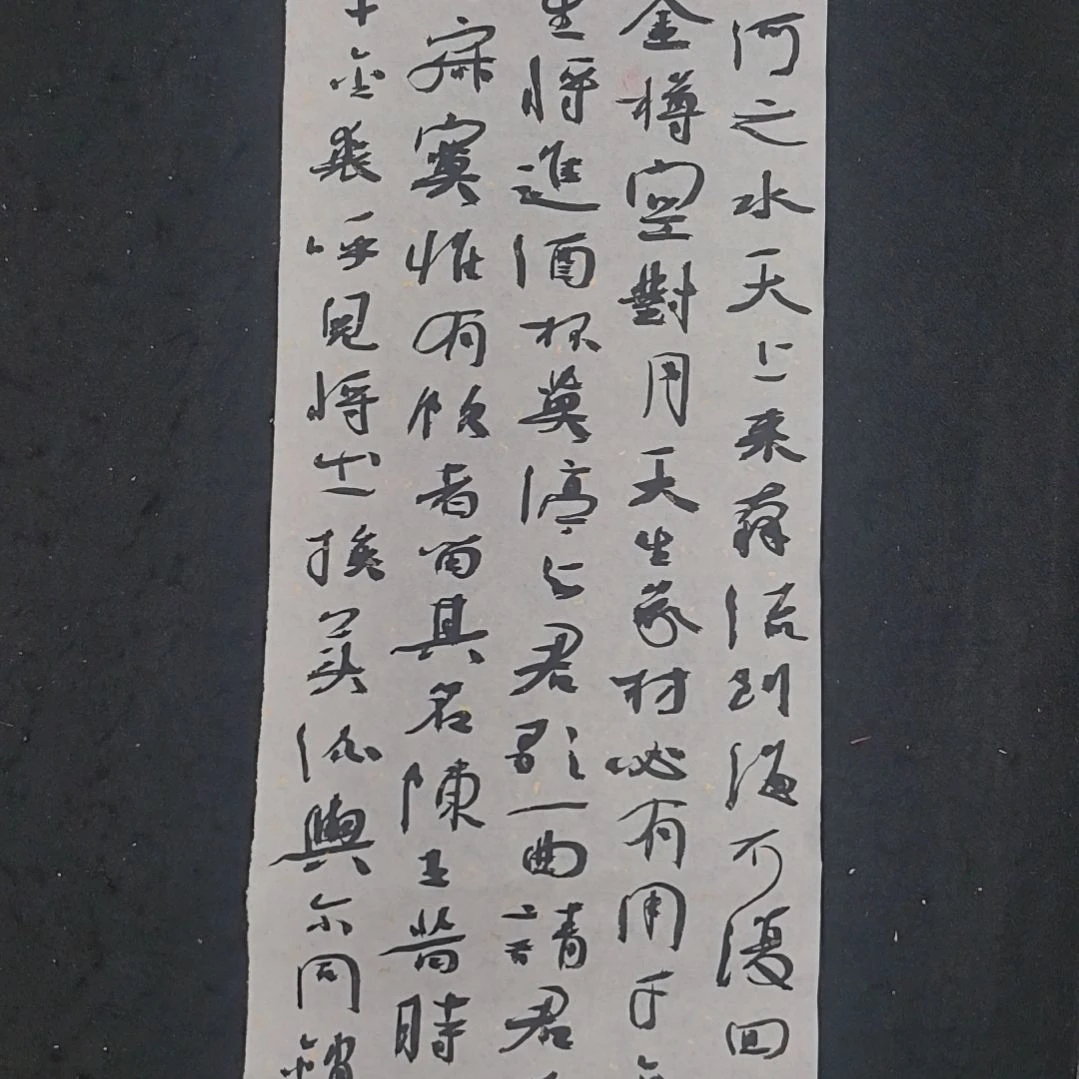 河之水天上来奔流到海不復回
金樽空對月天生我材必有用千
生將進酒杯莫停与君歌一曲請君
寂寞惟有飲者留其名陳王昔時
千金裘呼兒將出換美酒與尔同銷